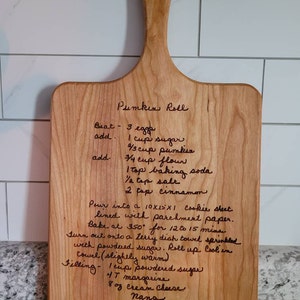 Pumkin Roll
Beat - 3 eggs
add 1 cup sugar
2/3 cup pumkin
add 3/4 cup flour
1 tsp baking soda
1/2 tsp salt
2 tsp cinnamon
Pour into a 10X15X1 cookie sheet
lined with parchment paper.
Bake at 350° for 12 to 15 mins
Turn out onto a Terry dish towel sprinkled
with powdered sugar. Roll up Cool in
towel (slightly warm)
Filling - 1 cup powdered sugar
4 T margarine
8 oz Cream Cheese
Nana